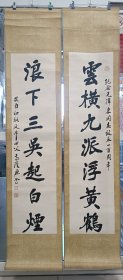 紀念毛澤東同志誕辰一百周年
雲橫九派浮黃鶴
浪下三吳起白煙